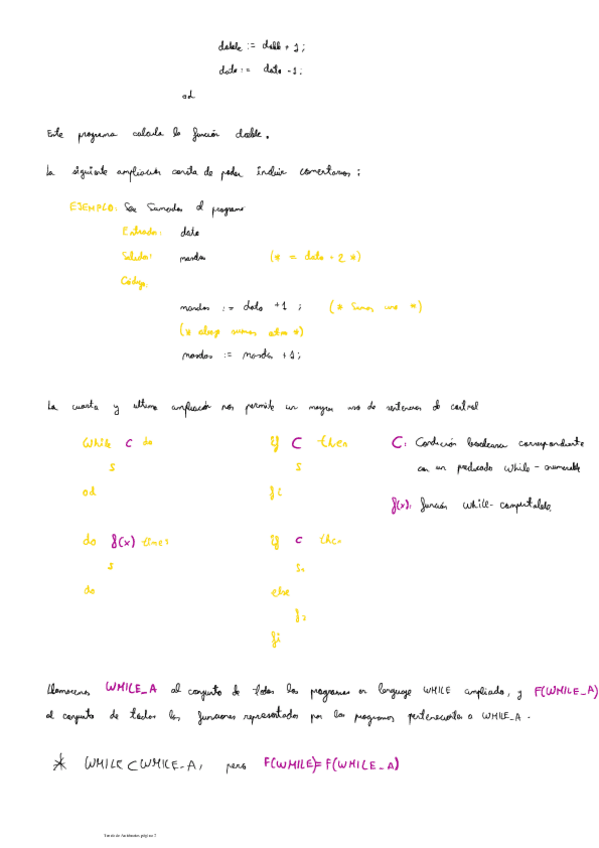 doble := doble + 1;
dato := dato - 1;
od
Este programa calcula la función doble.
La siguiente ampliación consta de poder incluir comentarios:
EJEMPLO: Sea Sumados el programa
Entrada: dato
Salida: (* = dato + 2 *)
Código:
:= dato + 1 ; (* Sumo uno *)
(* sumo otro *)
:= + 1;
La cuarta y ultima ampliación nos permite un mayor uso de sentencias de control
While C do if C then C: Condición booleana correspondiente
s s con un predicado While-enumerable
od fi f(x): función while-computable
do f(x) times if C then
s s1
do else
s2
fi
Llamaremos WHILE_A al conjunto de todos los programas en lenguaje WHILE ampliado, y F(WHILE_A)
al conjunto de todas las funciones representadas por los programas pertenecientes a WHILE_A.
* WHILE ⊂ WHILE_A, pero F(WHILE) = F(WHILE_A)